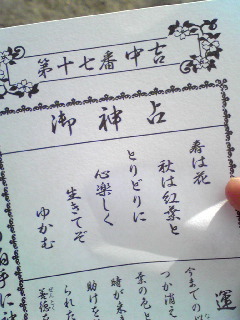 第十七番 中吉
御神占
春は花
秋は紅葉と
とりどりに
心楽しく
生きてぞ
ゆかむ
運
今までの
つか消え
葉の色と
時が来
助けを
られた